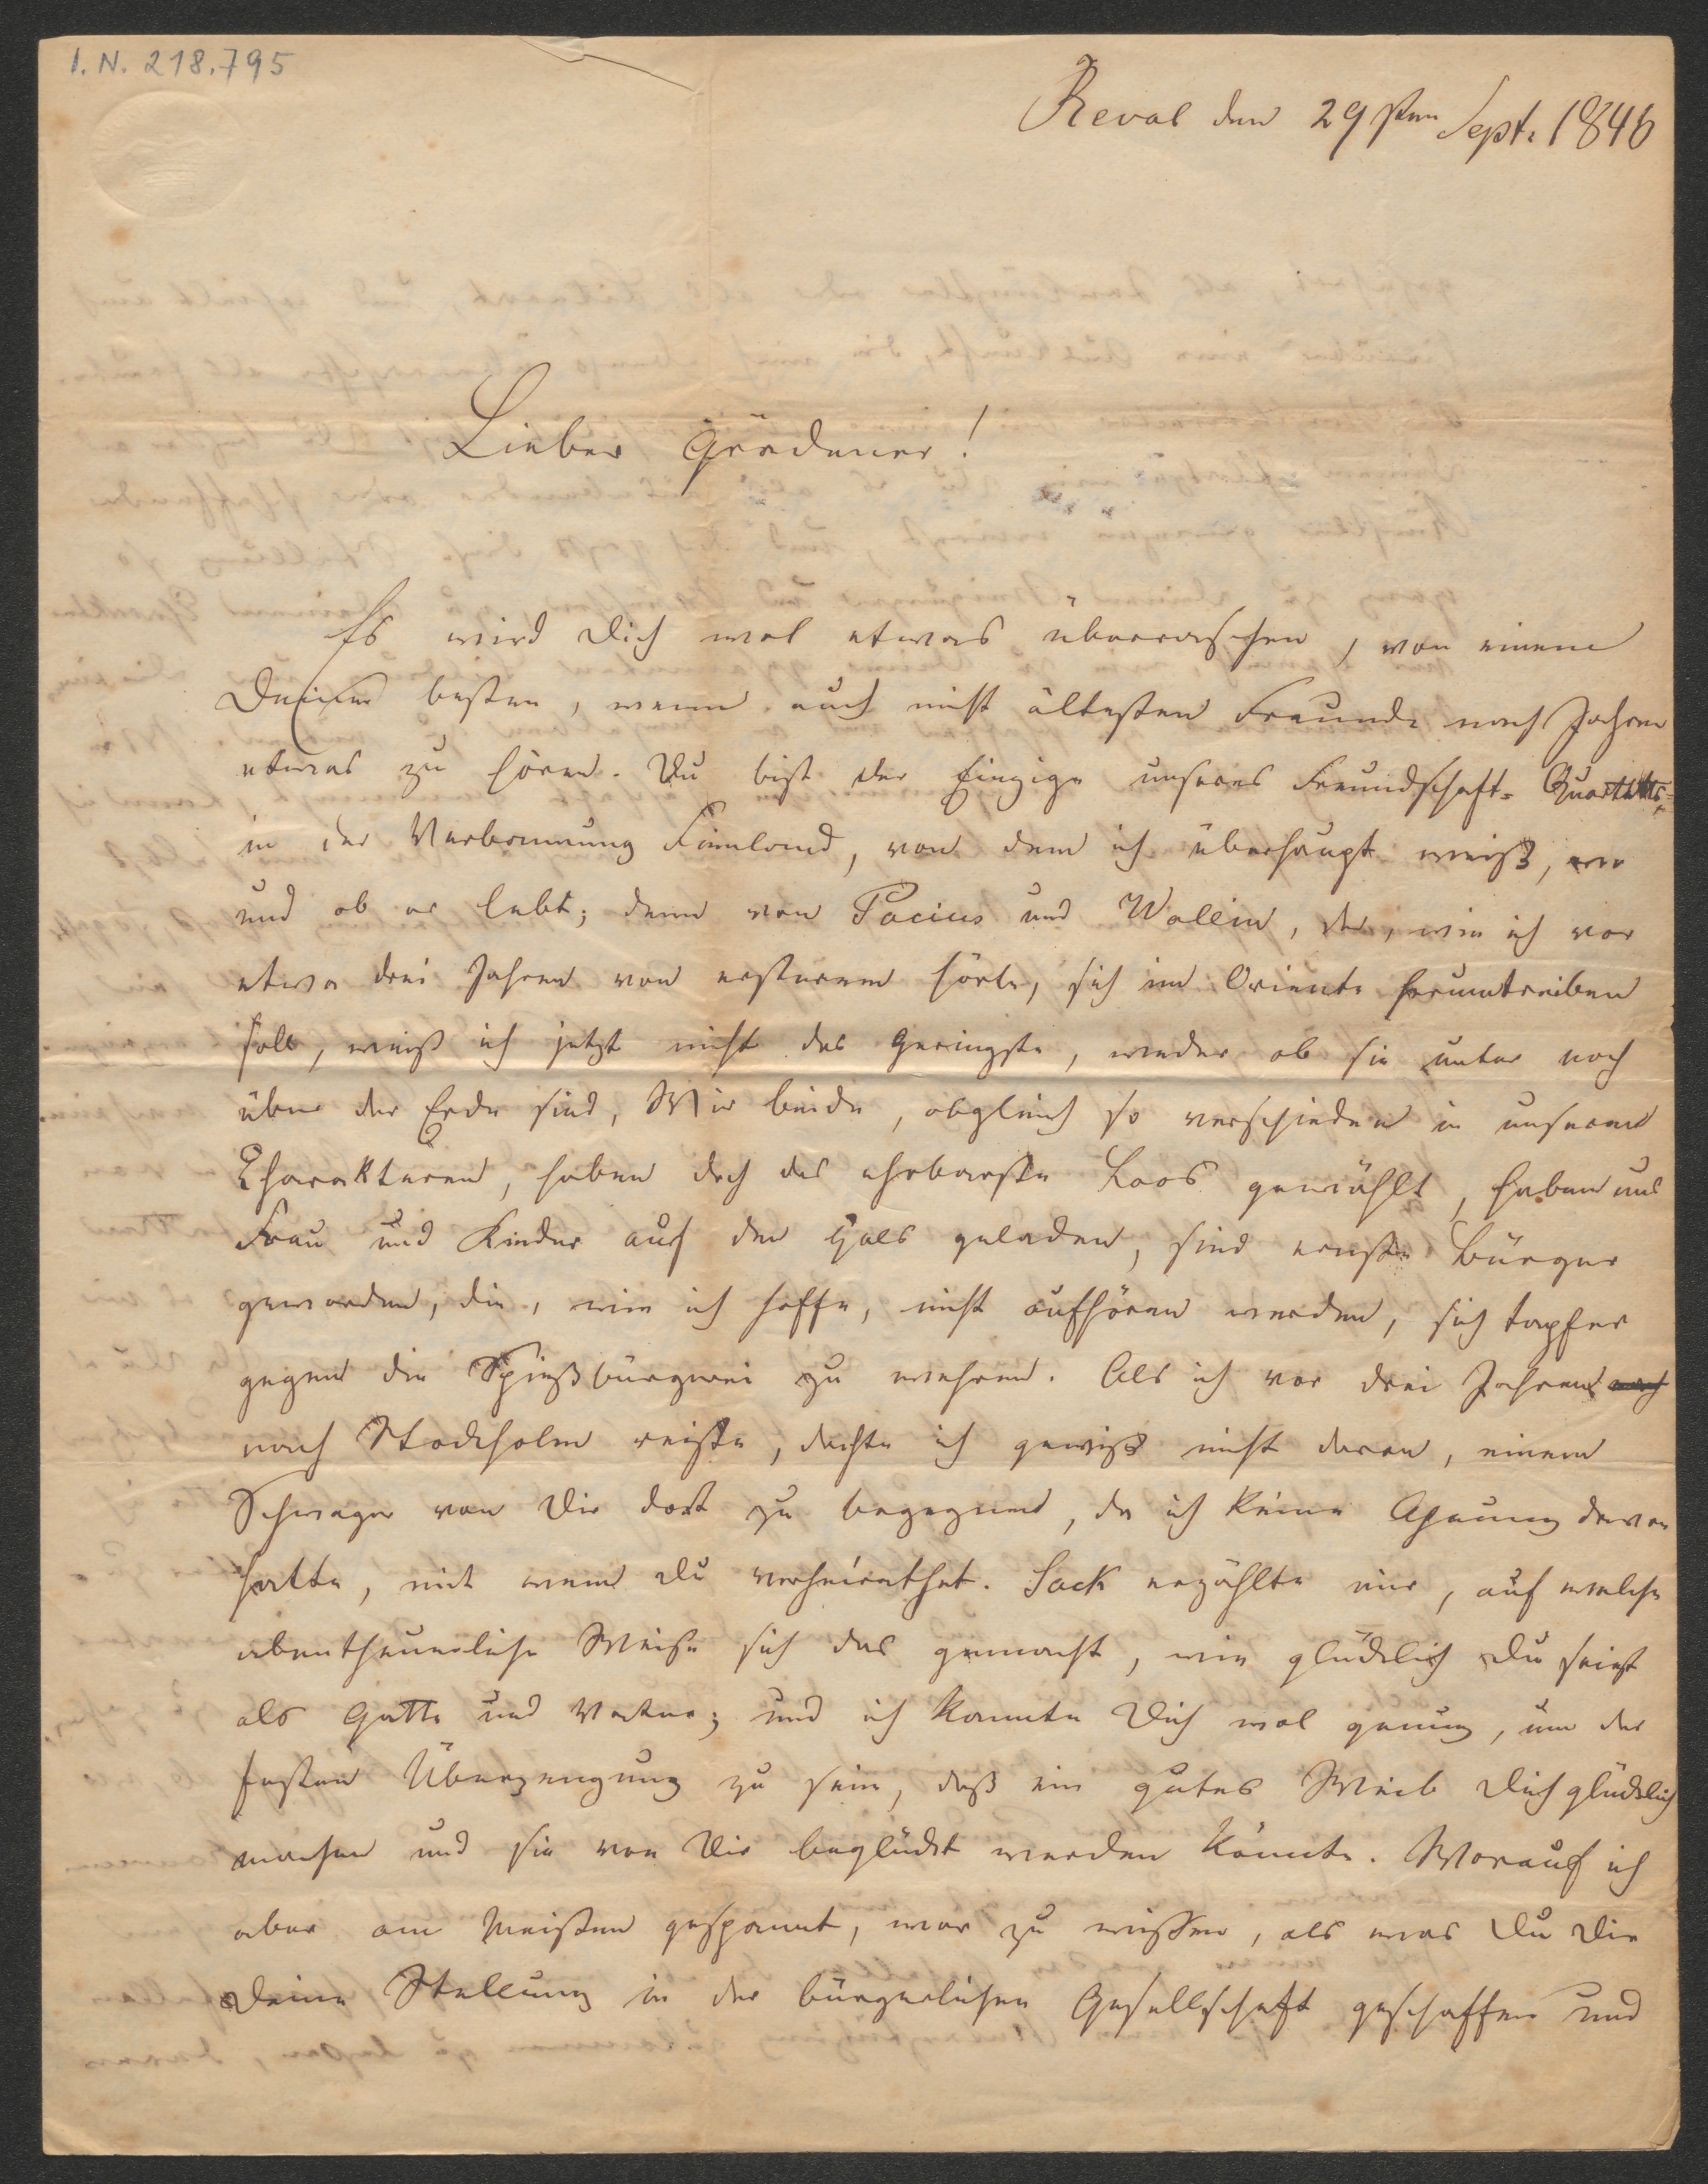 I. N. 218.795
Reval den 29sten Sept. 1846
Lieber Gärdener!
Es wird Dich wol etwas überraschen, von einem
Deiner besten, wenn auch nicht ältesten Freunde nach Jahren
etwas zu hören. Du bist der Einzige unseres Freundschaft-Quartetts
in der Verbannung Finnland, von dem ich überhaupt weiß, wo
und ob er lebt; denn von Pacius und Wallin, der, wie ich vor
etwa drei Jahren von ersterem hörte, sich im Oriente herumtreiben
soll, weiß ich jetzt nicht das Geringste, weder ob sie unter noch
über der Erde sind. Wir beide, obgleich so verschieden in unseren
Charakteren, haben doch das ehrbarste Loos gewählt, haben uns
Frau und Kinder auf den Hals geladen, sind ernste Bürger
geworden, die, wie ich hoffe, nicht aufhören werden, sich tapfer
gegen die Spießbürgerei zu wehren. Als ich vor drei Jahren
nach Stockholm reiste, dachte ich gewiß nicht daran, einem
Schwager von Dir dort zu begegnen, da ich keine Ahnung davon
hatte, mit wem Du verheirathet. Sack erzählte mir, auf welche
abentheuerliche Weise sich das gemacht, wie glücklich Du seiest
als Gatte und Vater; und ich kannte Dich wol genug, um der
festen Überzeugung zu sein, daß ein gutes Weib Dich glücklich
machen und sie von Dir beglückt werden könnte. Worauf ich
aber am Meisten gespannt, war zu wissen, als was Du Dir
Deine Stellung in der bürgerlichen Gesellschaft geschaffen und